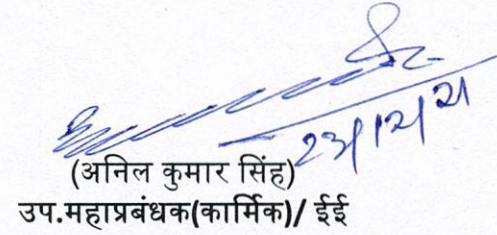 23/12/21
(अनिल कुमार सिंह)
उप.महाप्रबंधक(कार्मिक)/ ईई